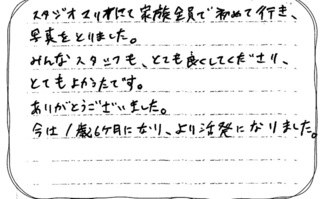 スタジオマリオにて家族全員で初めて行き、
写真をとりました。
みんなスタッフも、とても良くしてくださり、
とてもよかったです。
ありがとうございました。
今は1歳6ヶ月になり、より活発になりました。